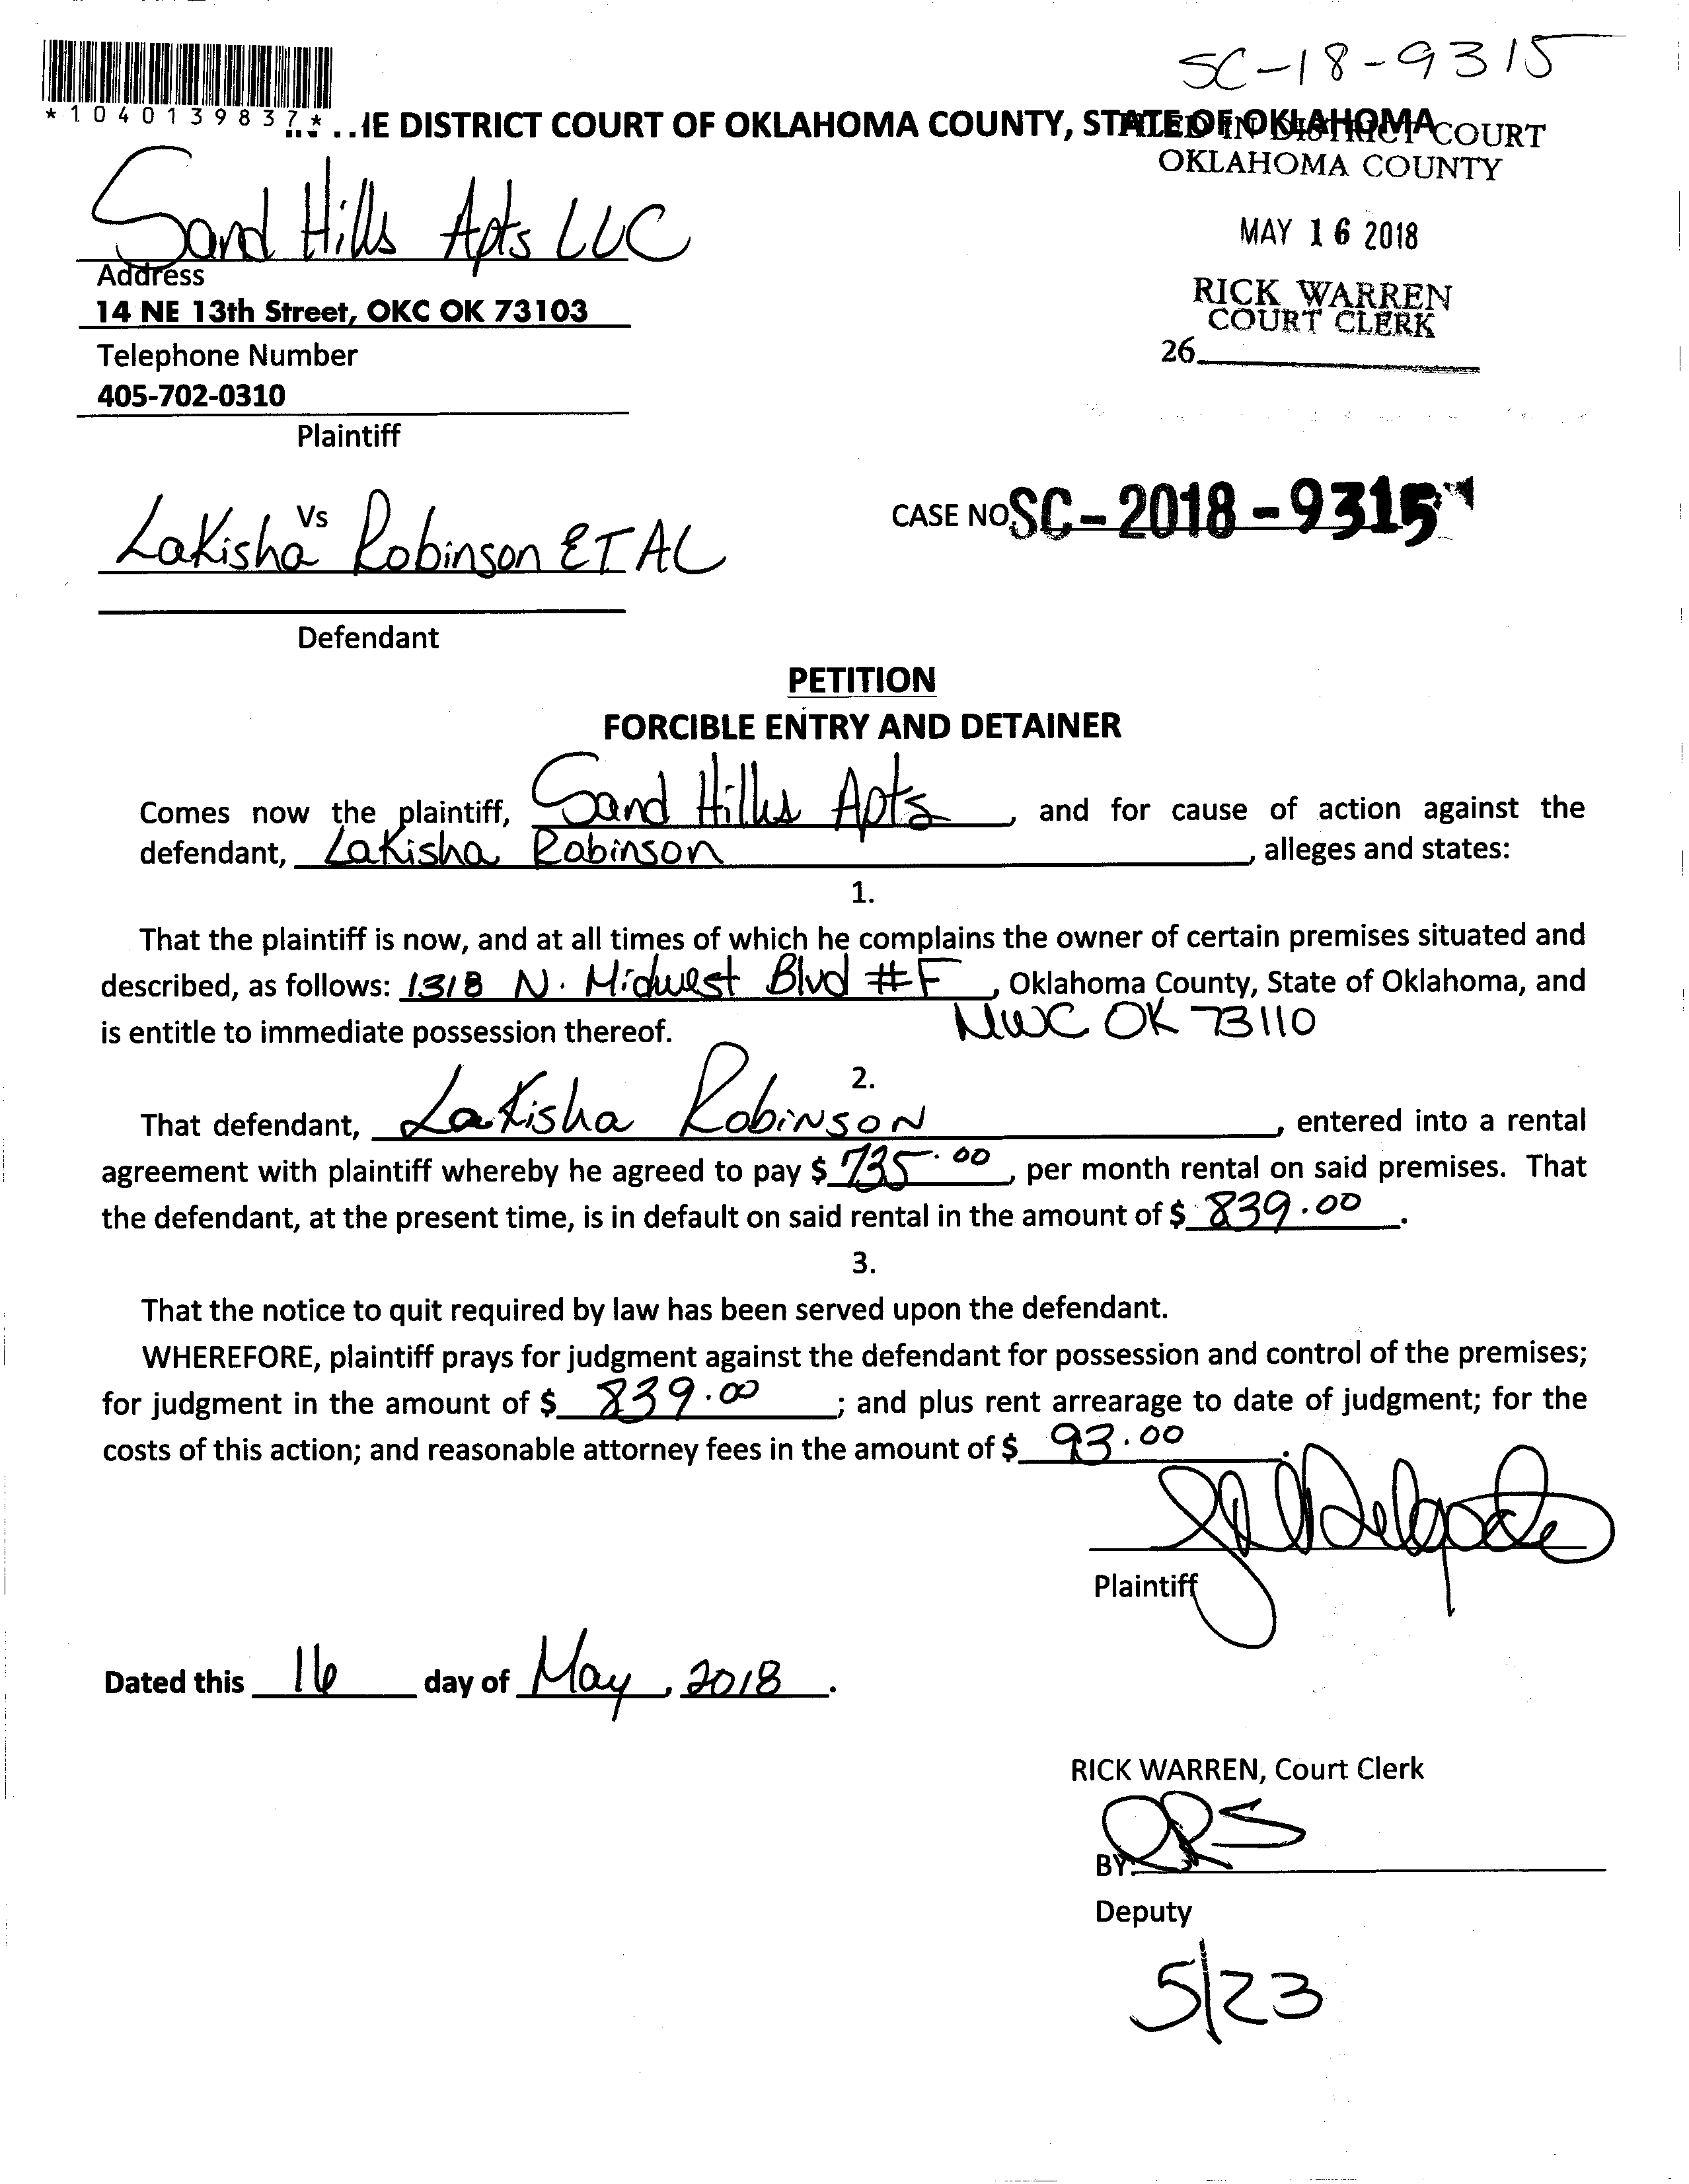 SC-18-9315
*1040139837*
IE DISTRICT COURT OF OKLAHOMA COUNTY, STATE OF OKLAHOMA
FILED IN DISTRICT COURT
OKLAHOMA COUNTY
Sand Hills Apts LLC
MAY 16 2018
Address
14 NE 13th Street, OKC OK 73103
RICK WARREN
COURT CLERK
Telephone Number
26
405-702-0310
Plaintiff
Vs
CASE NO SC-2018-9315
LaKisha Robinson ET AL
Defendant
PETITION
FORCIBLE ENTRY AND DETAINER
Comes now the plaintiff, Sand Hills Apts, and for cause of action against the
defendant, LaKisha Robinson, alleges and states:
1.
That the plaintiff is now, and at all times of which he complains the owner of certain premises situated and
described, as follows: 1318 N. Midwest Blvd #F, Oklahoma County, State of Oklahoma, and
is entitle to immediate possession thereof. MWC OK 73110
2.
That defendant, LaKisha Robinson, entered into a rental
agreement with plaintiff whereby he agreed to pay $ 735.00, per month rental on said premises. That
the defendant, at the present time, is in default on said rental in the amount of $ 839.00.
3.
That the notice to quit required by law has been served upon the defendant.
WHEREFORE, plaintiff prays for judgment against the defendant for possession and control of the premises;
for judgment in the amount of $ 839.00; and plus rent arrearage to date of judgment; for the
costs of this action; and reasonable attorney fees in the amount of $ 93.00.
Plaintiff
Dated this 16 day of May, 2018.
RICK WARREN, Court Clerk
BY:
Deputy
5/23